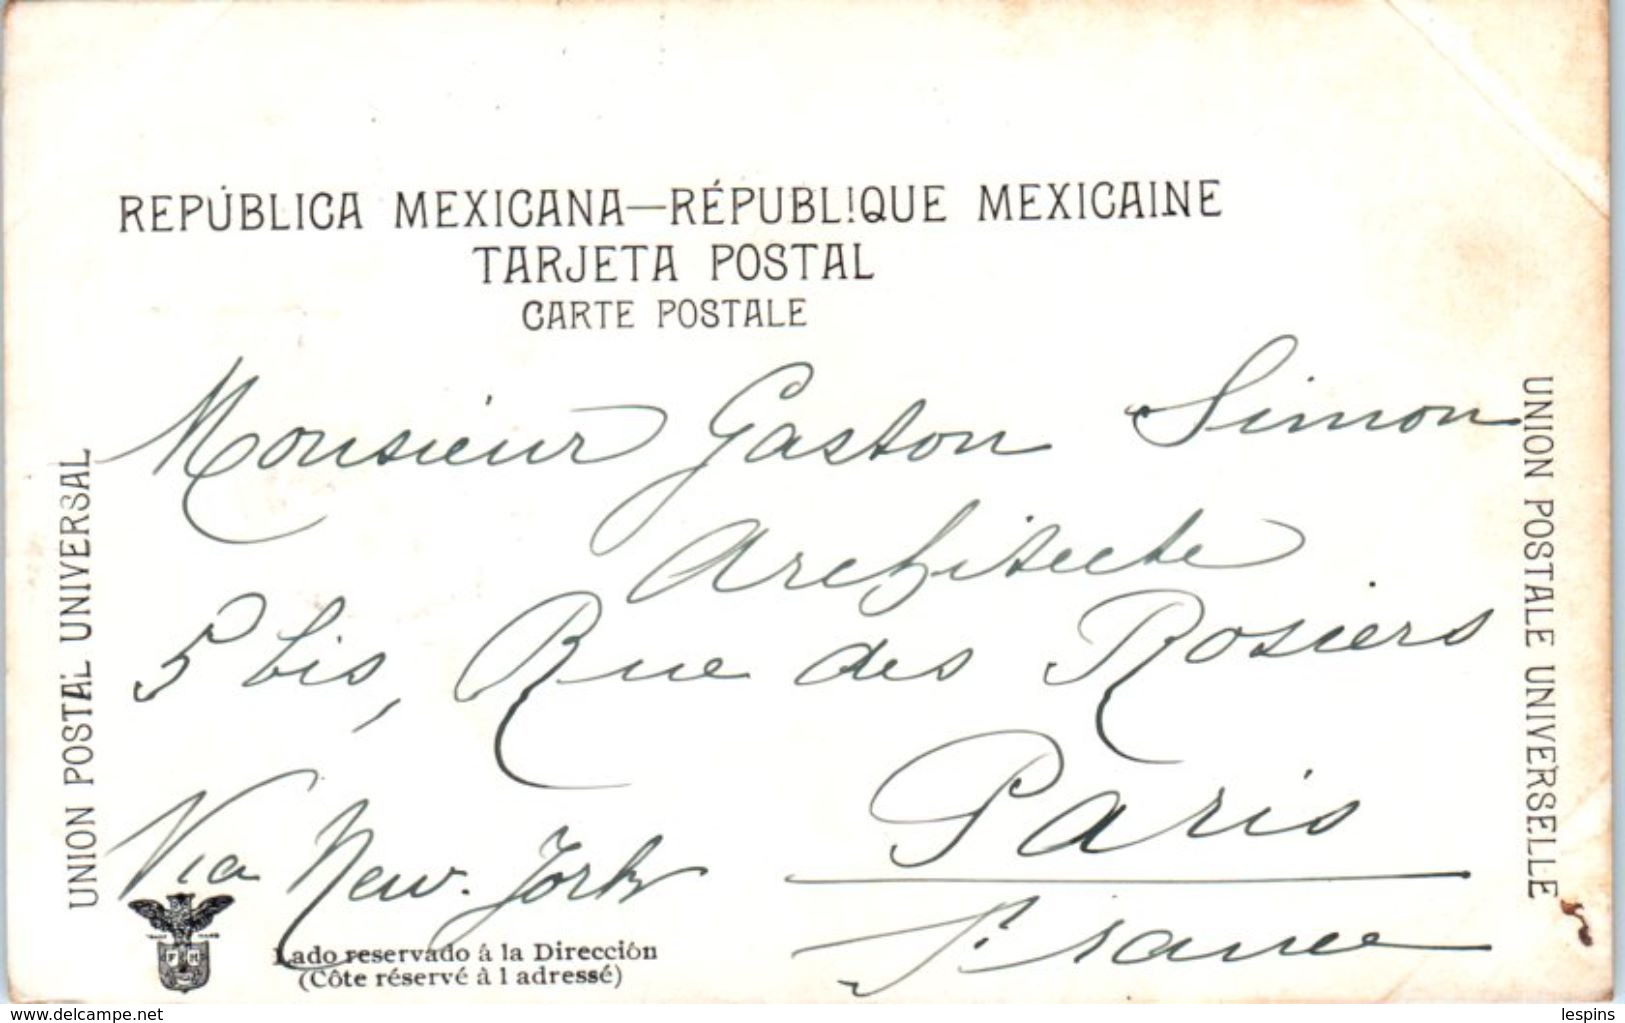 REPÚBLICA MEXICANA—RÉPUBLIQUE MEXICAINE
TARJETA POSTAL
CARTE POSTALE
UNION POSTAL UNIVERSAL
UNION POSTALE UNIVERSELLE
Monsieur Gaston Simon
Architecte
5 bis, Rue des Rosiers
Paris
Via New-York
France
F M
Lado reservado â la Dirección
(Côte réservé â l adressé)
delcampe.net
lespins